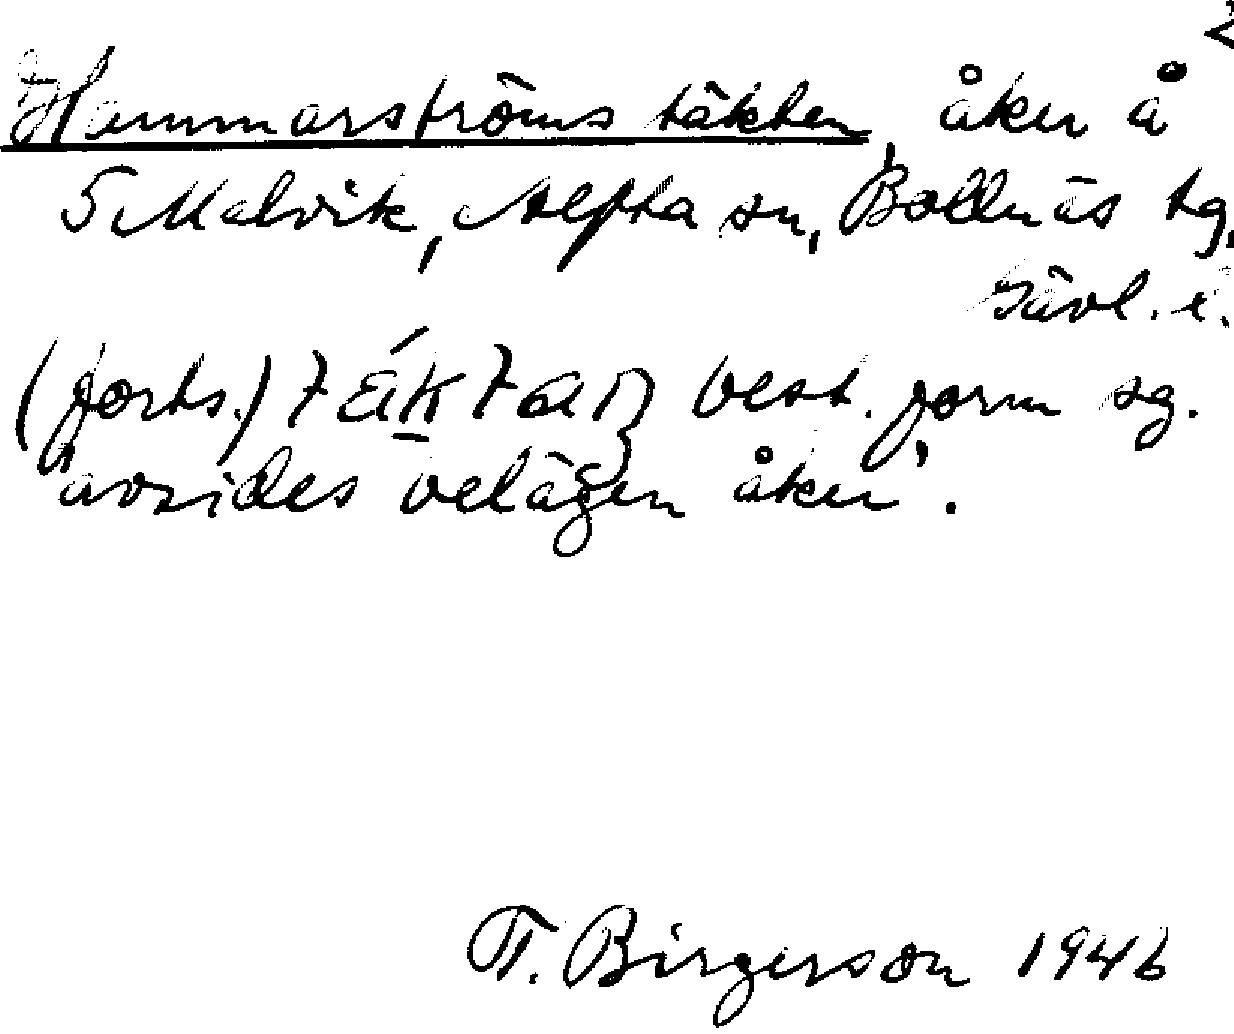 2
Hammarströms täkten, åker å
5 Malvik, Alfta sn, Bollnäs tg,
Gävl. l.
(forts.) täktan best. form sg.
'avsides belägen åker'.
F. Birgerson 1946